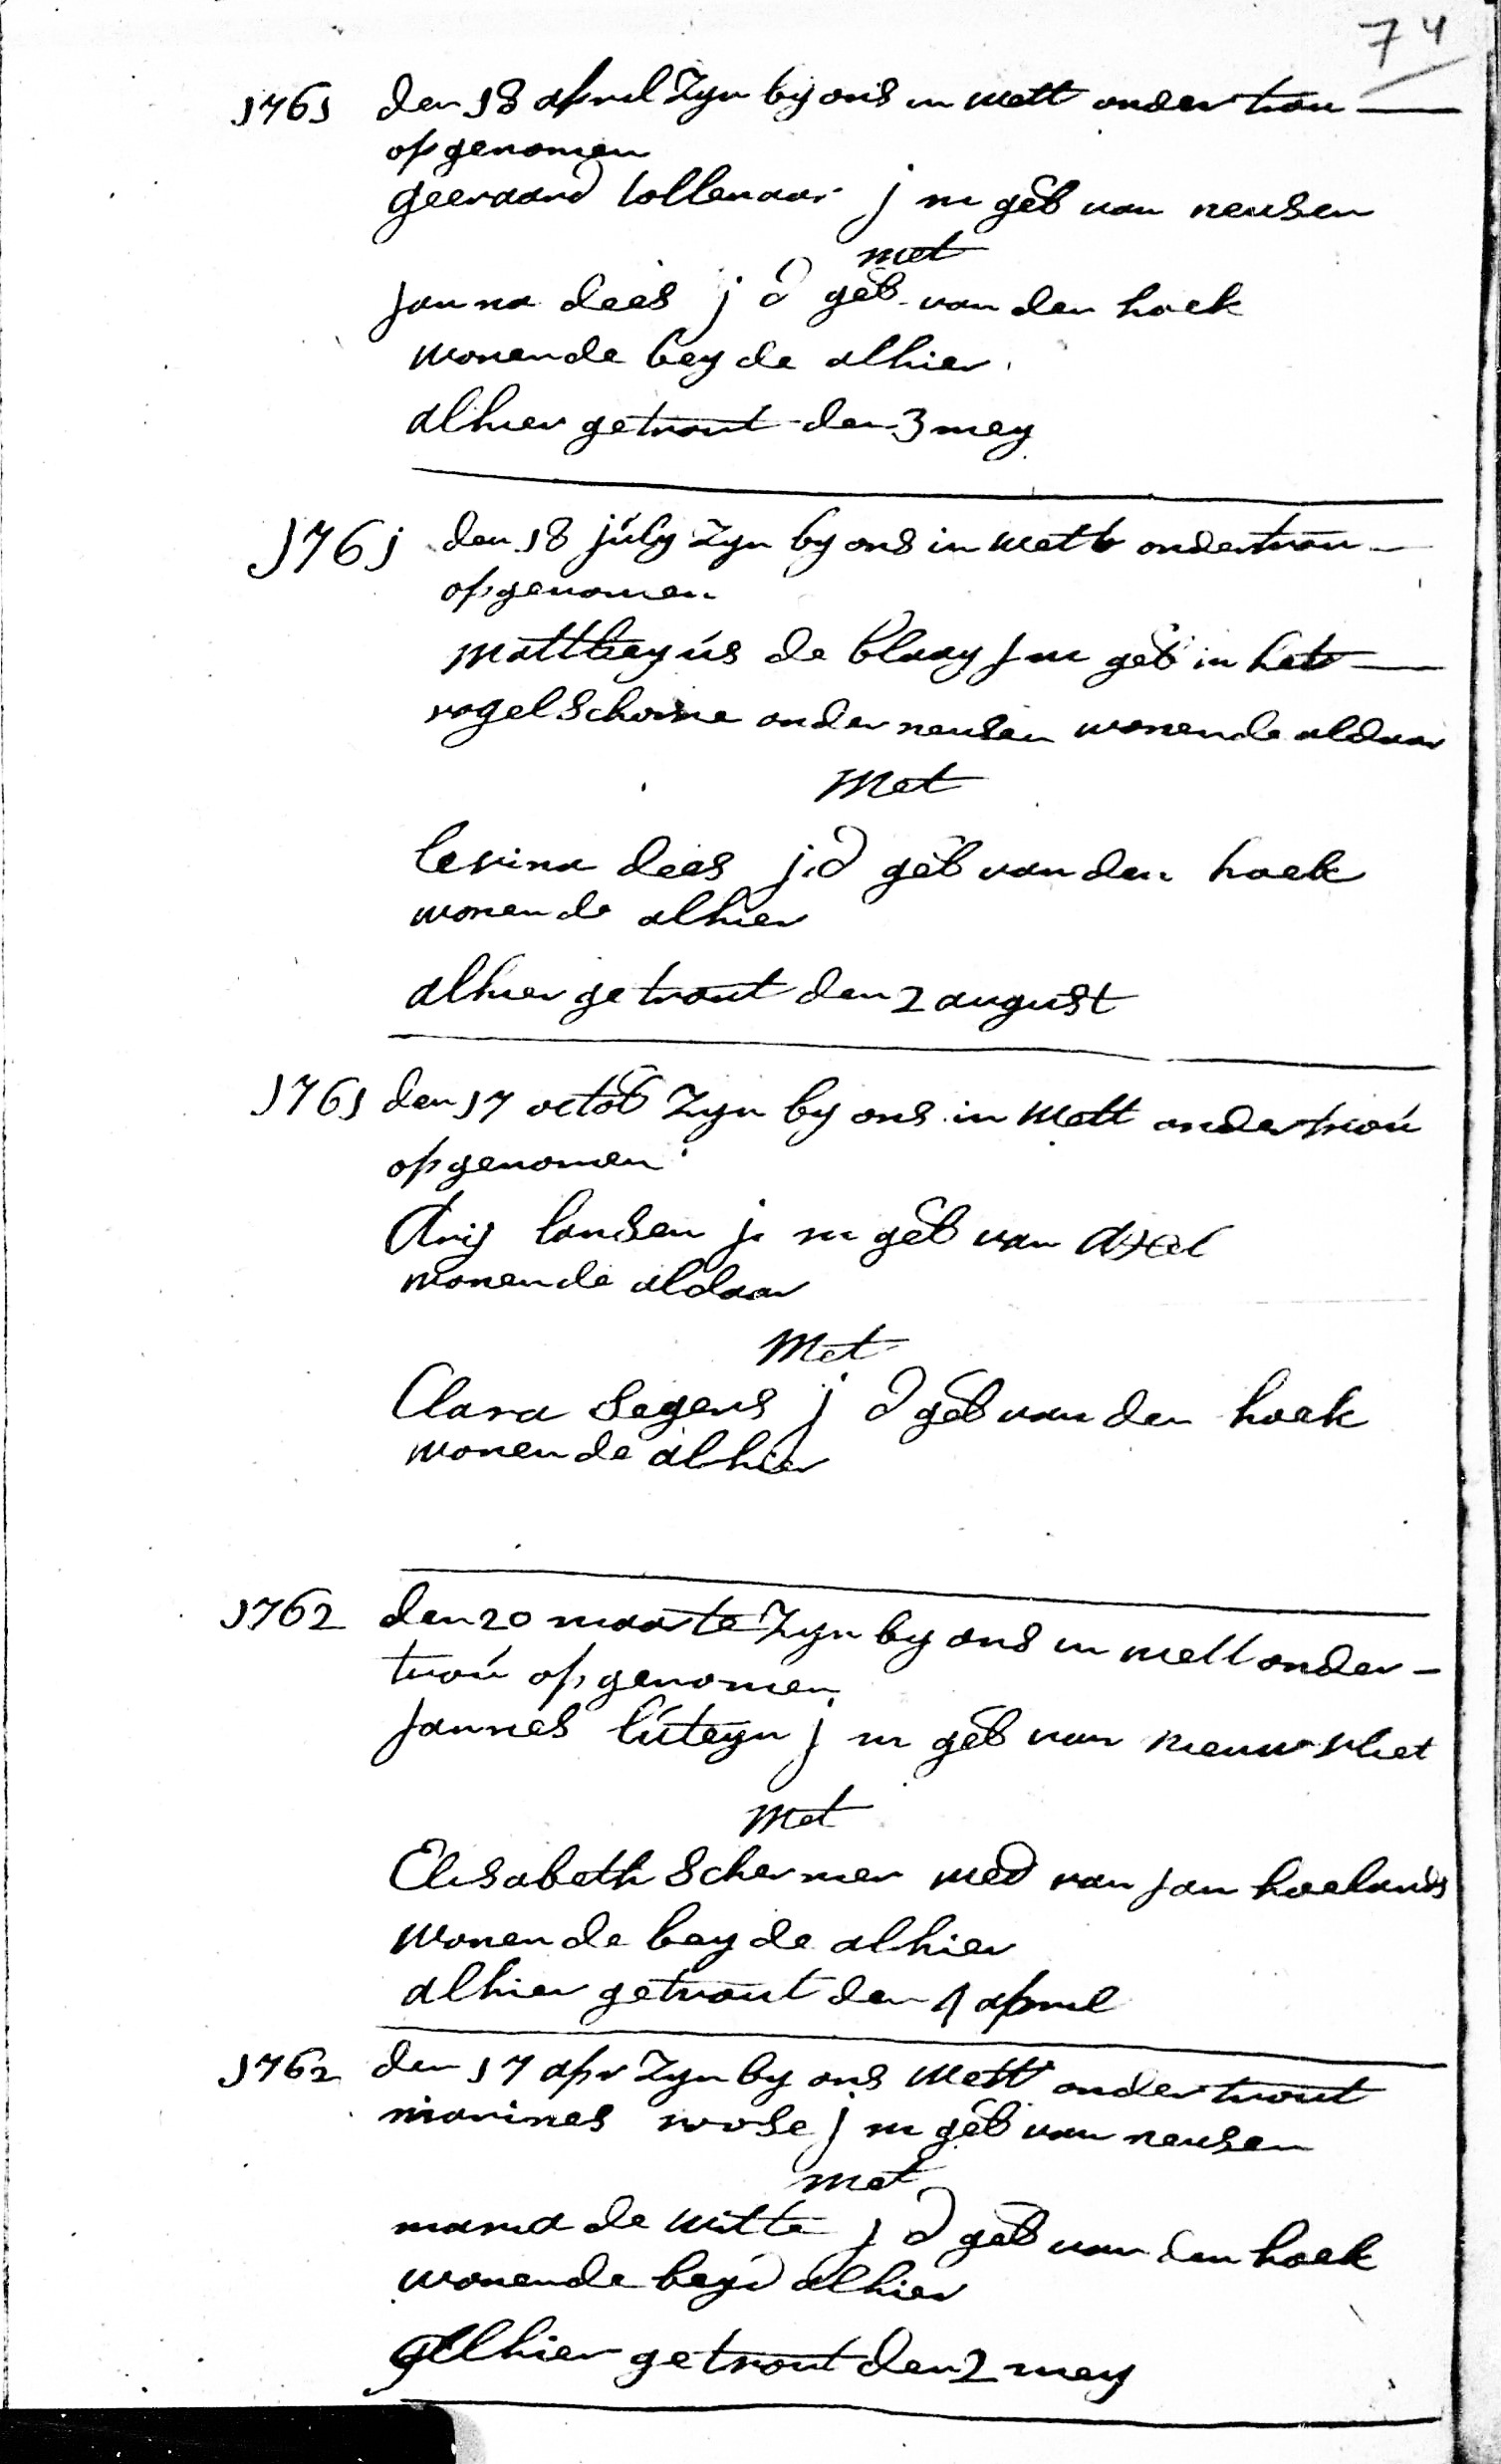 74
1761 den 18 april Zyn by ons in wett ondertrou
opgenomen
geeraard tollenaar j m geb van neusen
met
Janna dees j d geb van den hoek
wonende beyde alhier
alhier getrout den 3 mey
1761 den 18 july Zyn by ons in wett ondertrou
opgenomen
mattheyus de blaay j m geb in het
vogelschorre onder neusen wonende aldaar
Met
levina dees j d geb van den hoek
wonende alhier
alhier getrout den 2 august
1761 den 17 octob Zyn by ons in wett ondertrou
opgenomen
Arij lansen j m geb van Axel
wonende aldaar
Met
Clara Segers j d geb van den hoek
wonende alhier
1762 den 20 maarte Zyn by ons in wett onder-
trou opgenomen
Jannes luteyn j m geb van nieuwvliet
Met
Elisabeth Schermer wed van jan hoelands
wonende beyde alhier
alhier getrout den 4 april
1762 den 17 apr Zyn by ons wett ondertrout
marines roose j m geb van neusen
met
maria de witte j d geb van den hoek
wonende beyd alhier
Alhier getrout den 2 mey